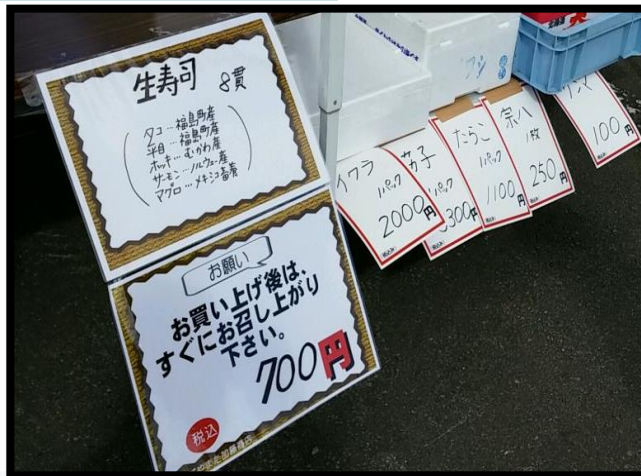 生寿司 8貫
タコ…福島町産
平目…福島町産
ホッキ…むかわ産
サーモン…ノルウェー産
マグロ…メキシコ畜養
お願い
お買い上げ後は、
すぐにお召し上がり
下さい。
700円
税込
イクラ
1パック
2000円
パック
300円
たらこ
1パック
1100円
宗八
1枚
250円
100円